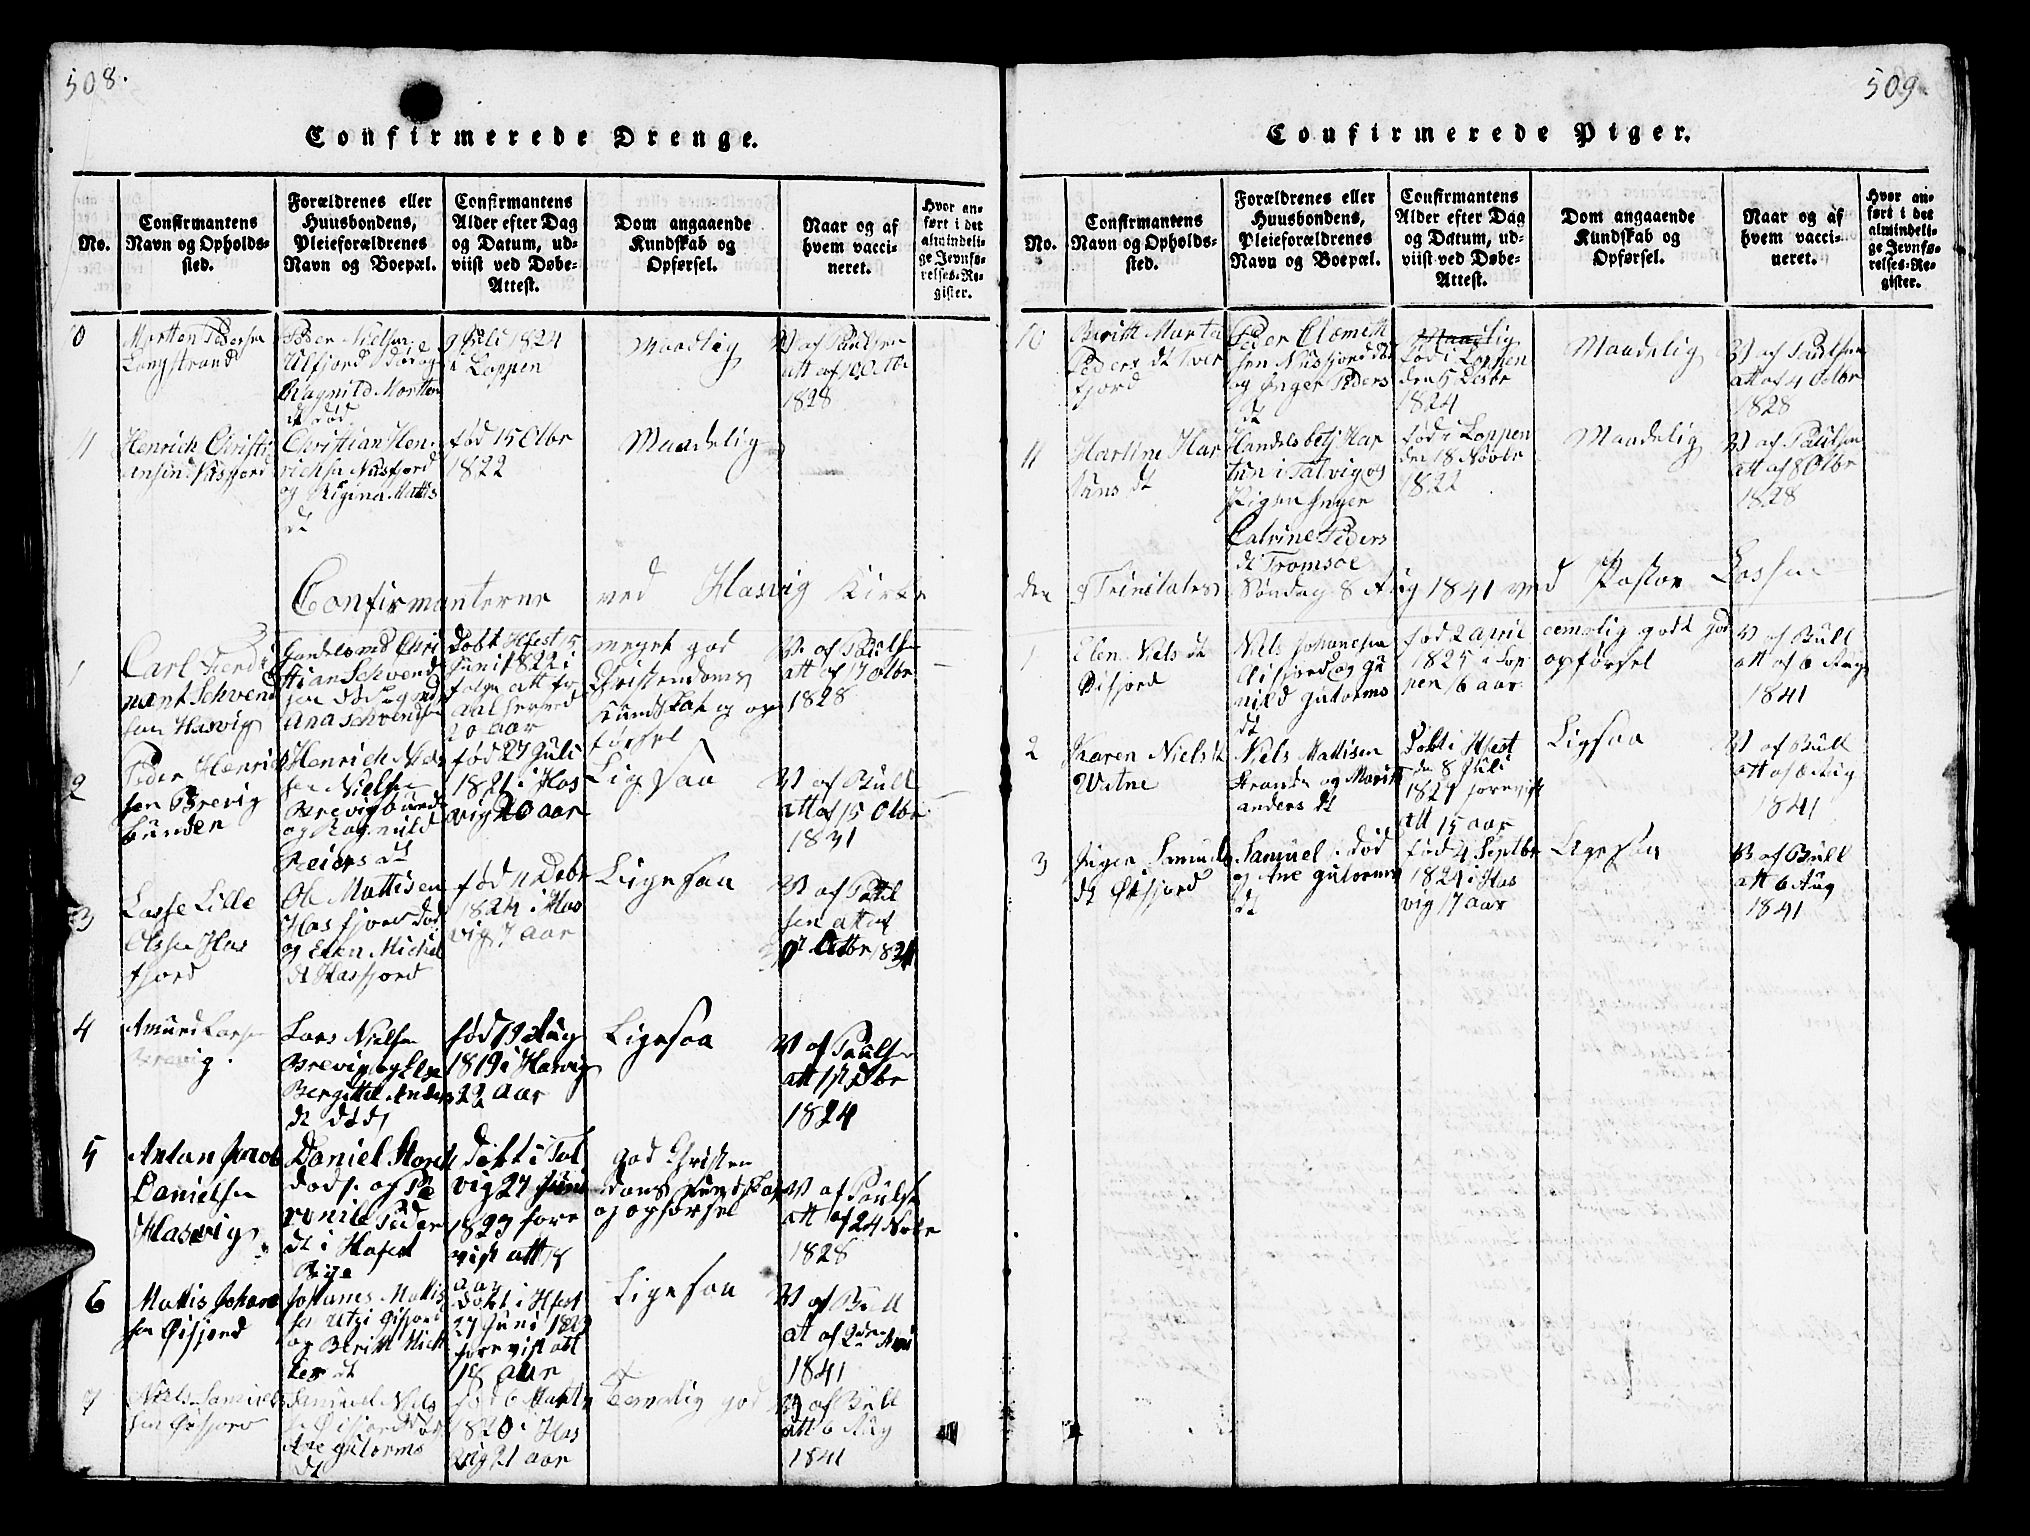 508.
Confirmerede Drenge.
No.
Confirmantens
Navn og Opholds-
sted.
Forældrenes eller
Huusbondens,
Pleieforældrenes
Navn og Boepæl.
Confirmantens
Alder efter Dag
og Datum, ud-
viist ved Døbe-
Attest.
Dom angaaende
Kundskab og
Opførsel.
Naar og af
hvem vacci-
neret.
Hvor an-
ført i det
almindeli-
ge Jevnfø-
relses-Re-
gister.
Morten Pedersen
Langstrand
Peder Nielsen
Ulfjord
Ragnild Morten
dt død
9 Juli 1824
i Loppen
Maadlig
V af Paulsen
att af 10 Otbr
1828
11
Henrich Christi
ensen Nusfjord
Christian Hen
richsen Nusfjord
og Regina Mattis
dt
fød 15 Otbr
1822
Maadelig
Confirmanterne ved Hasvig Kirke
1
Carl Ferdi
nant Schvend
sen Hasvig
Handelsmd Chri
stian Schvend
Døbt Hfest 15
Juni 1822 i
følge att
20 aar
meget god
Christendoms
Kundskab og op
førsel
V. af Paulsen
att af 17 Otbr
1828
2
Peder Henrich
sen Brevig
bunden
Henrich
Nielsen
Brevigbund
og Ragnild
Reiers dt
fød 27 Juli
1821 i Has
vig 20 aar
Ligesaa
V af Bull
att af 15 Otbr
1831
3
Lasse Lille
Olsen Has
fjord
Ole Mattisen
Hasfjord død
og Elen Michel
dt Hasfjord
fød 11 Debr
1824 i Has
vig 17 aar
Ligesaa
V af Paul
sen att af
Otbr
4
Amund Larsen
Brevig.
Lars Nielsen
Brevig og Else
Bergitte Anders
dt død
fød 19 Aug
1819 i Hasvig
22 aar
Ligesaa
V af Paulsen
att
1824
5
Anton Jacob
Danielsen
Hasvig
Daniel
død. og Pe
ronile Peder
dt i Hafest
Bye
Døbt i Tal
vig 27 Juni
1823 fore
vist att 18
aar
god Christen
doms Kundskab
og opførsel
V af Paulsen
att af 24 Nobr
1828
6
Mattis Johane
sen Øisfjord
Johanes Mattis
sen Utzi Øisfjord
og Beritt Mich
els dt
Døbt i Hfest
27 Juni 1823
forevist att
18 aar
Ligesaa
V af Bull
att af
1841
7
Niels Samuel
sen Øisfjord
Samuel Niels
sen Øisfjord død
Ane Gutorms
dt
fød 6 Marts
1820 i Has
vig 21 aar
Temmelig god
V af Bull
att 6 Aug
1841
509.
Confirmerede Piger.
No.
Confirmantens
Navn og Opholds-
sted.
Forældrenes eller
Huusbondens,
Pleieforældrenes
Navn og Boepæl.
Confirmantens
Alder efter Dag
og Datum, ud-
viist ved Døbe-
Attest.
Dom angaaende
Kundskab og
Opførsel.
Naar og af
hvem vacci-
neret.
Hvor an-
ført i det
almindeli-
ge Jevnfø-
relses-Re-
gister.
10
Beritt Marta
Peders dt
fjord
Peder Clemett
sen Nusfjord
og Inger Peders
dt
Maadlig
fød i Loppen
den 5 Desbr
1824
Maadelig
V af Paulsen
att af 4 Octbr
1828
11
Hartine Har
tuns dt
Handelsbetj Har
tun i Talvig og
Pigen Inger
Catrine Peders
dt Tromsøe
fød i Loppen
den 18 Novbr
1822
Maadelig
V af Paulsen
att af 8 Otbr
1828
den 9 Trinitates Søndag 8 Aug 1841 ved Pastor Lassen
1
Elen Niels dt
Øisfjord
Niels Johanesen
Øisfjord og Gu
nild Gutorms
dt
fød 2 April
1825 i Lop
pen 16 aar
temelig godt god
opførsel
V af Bull
att af 6 Aug
1841
2
Karen Niels dt
Watne
Niels Mattisen
Stranden og Maritt
anders dt
Døbt i Hfest
den 8 Juli
forevist
att 15 aar
Ligsaa
V af Bull
att af 6 Aug
1841
3
Inger Samuels
dt Øisfjord
Samuel død
og Ane Gutorms
dt
fød 4 Septbr
1824 i Has
vig 17 aar
Ligesaa
V af Bull
att 6 Aug
1841